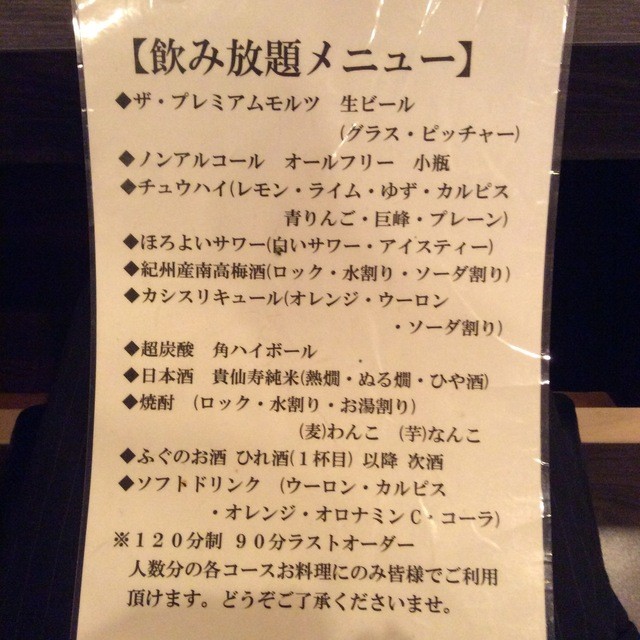 【飲み放題メニュー】
◆ザ・プレミアムモルツ 生ビール
(グラス・ピッチャー)
◆ノンアルコール オールフリー 小瓶
◆チュウハイ(レモン・ライム・ゆず・カルピス
青りんご・巨峰・プレーン)
◆ほろよいサワー(白いサワー・アイスティー)
◆紀州産南高梅酒(ロック・水割り・ソーダ割り)
◆カシスリキュール(オレンジ・ウーロン
・ソーダ割り)
◆超炭酸 角ハイボール
◆日本酒 貴仙寿純米(熱燗・ぬる燗・ひや酒)
◆焼酎 (ロック・水割り・お湯割り)
(麦)わんこ (芋)なんこ
◆ふぐのお酒 ひれ酒(１杯目) 以降 次酒
◆ソフトドリンク (ウーロン・カルピス
・オレンジ・オロナミンC・コーラ)
※１２０分制 ９０分ラストオーダー
人数分の各コースお料理にのみ皆様でご利用
頂けます。どうぞご了承くださいませ。